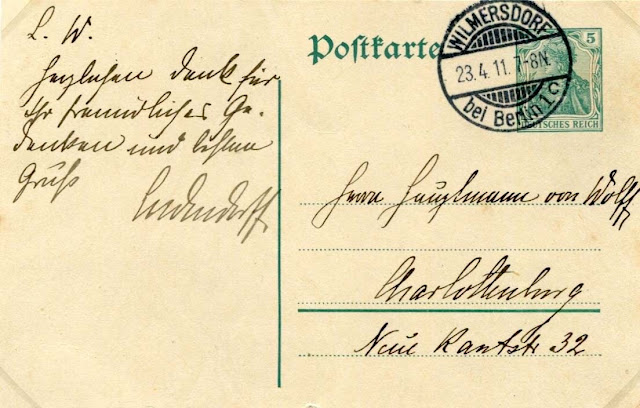 L. W.
Herzlichen Dank für
Ihr freundliches Ge-
denken und besten
Gruß
Ludendorff
Postkarte
WILMERSDORF
23.4.11. 7-8N.
bei Berlin 1 C
5
DEUTSCHES REICH
Herrn Hauptmann von Wolff
Charlottenburg
Neue Kantstr 32